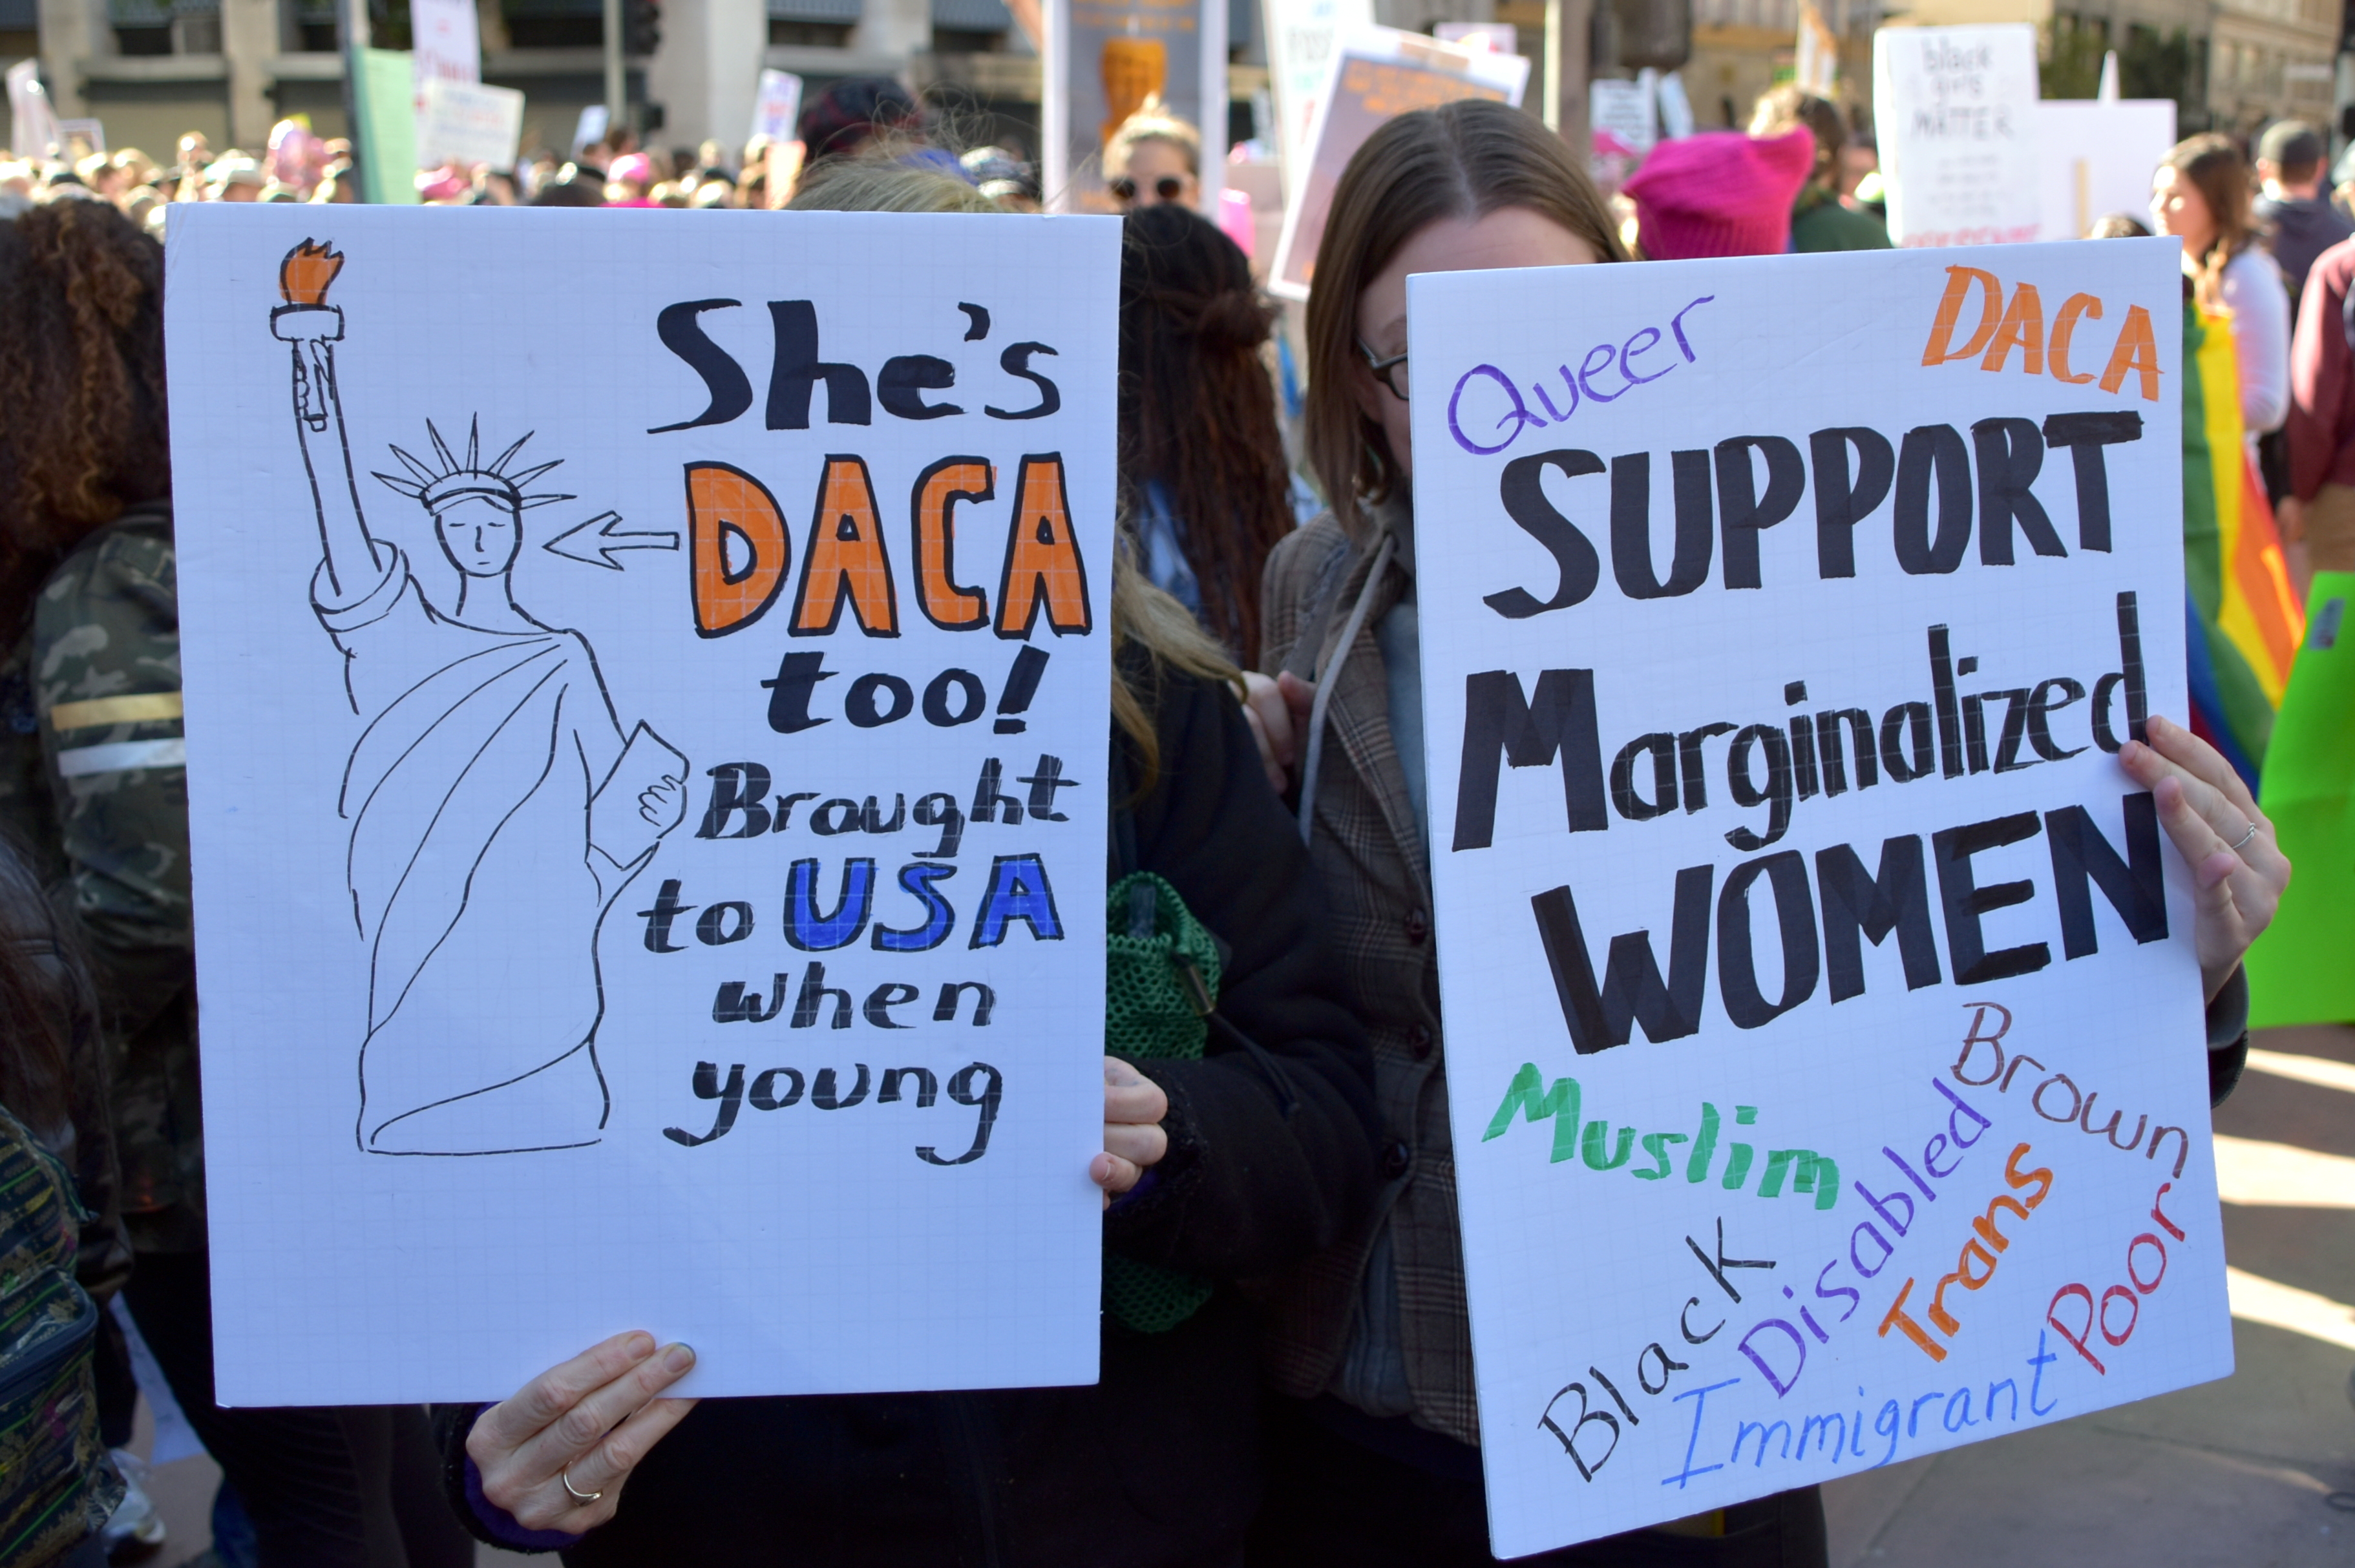 She's
DACA
too!
Brought
to USA
when
young
Queer
DACA
SUPPORT
Marginalized
WOMEN
Muslim
Brown
Disabled
Black
Trans
Poor
Immigrant
black
MATTER